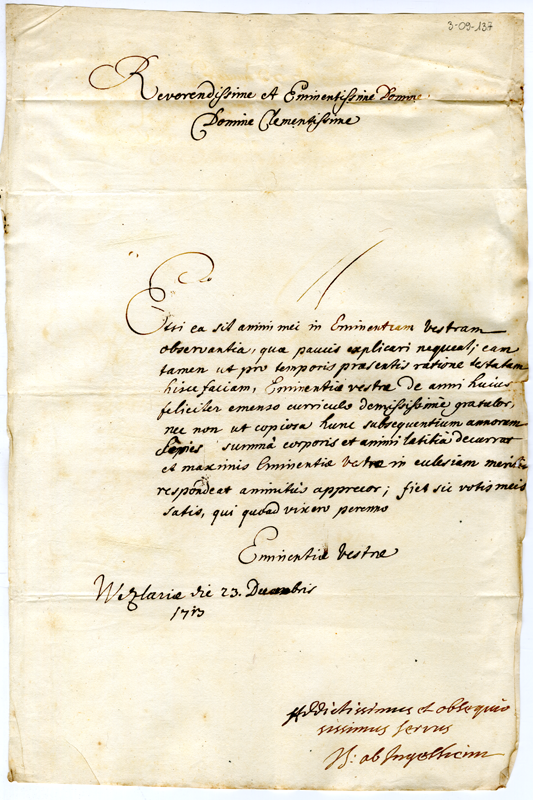 3-09-137
Reverendissime et Eminentissime Domine
Domine Clementissime
Etsi ea sit animi mei in Eminentiam Vestram
observantia, quæ paucis explicari nequeat; eam
tamen ut pro temporis præsentis ratione testatam
hisce faciam, Eminentiæ vestræ de anni huius
feliciter emenso curriculo demississime gratulor,
nec non ut copiosa hunc subsequentium annorum
series summâ corporis et animi lætitia decurrat
et maximis Eminentiæ vestræ in ecclesiam meritis
respondeat animitus apprecor; fiet sic votis meis
satis, qui quoad vixero perenno
Eminentiæ Vestræ
Wetzlariæ die 23. Decembris
1713
Addictissimus et obsequio
sissimus servus
ab Ingelheim